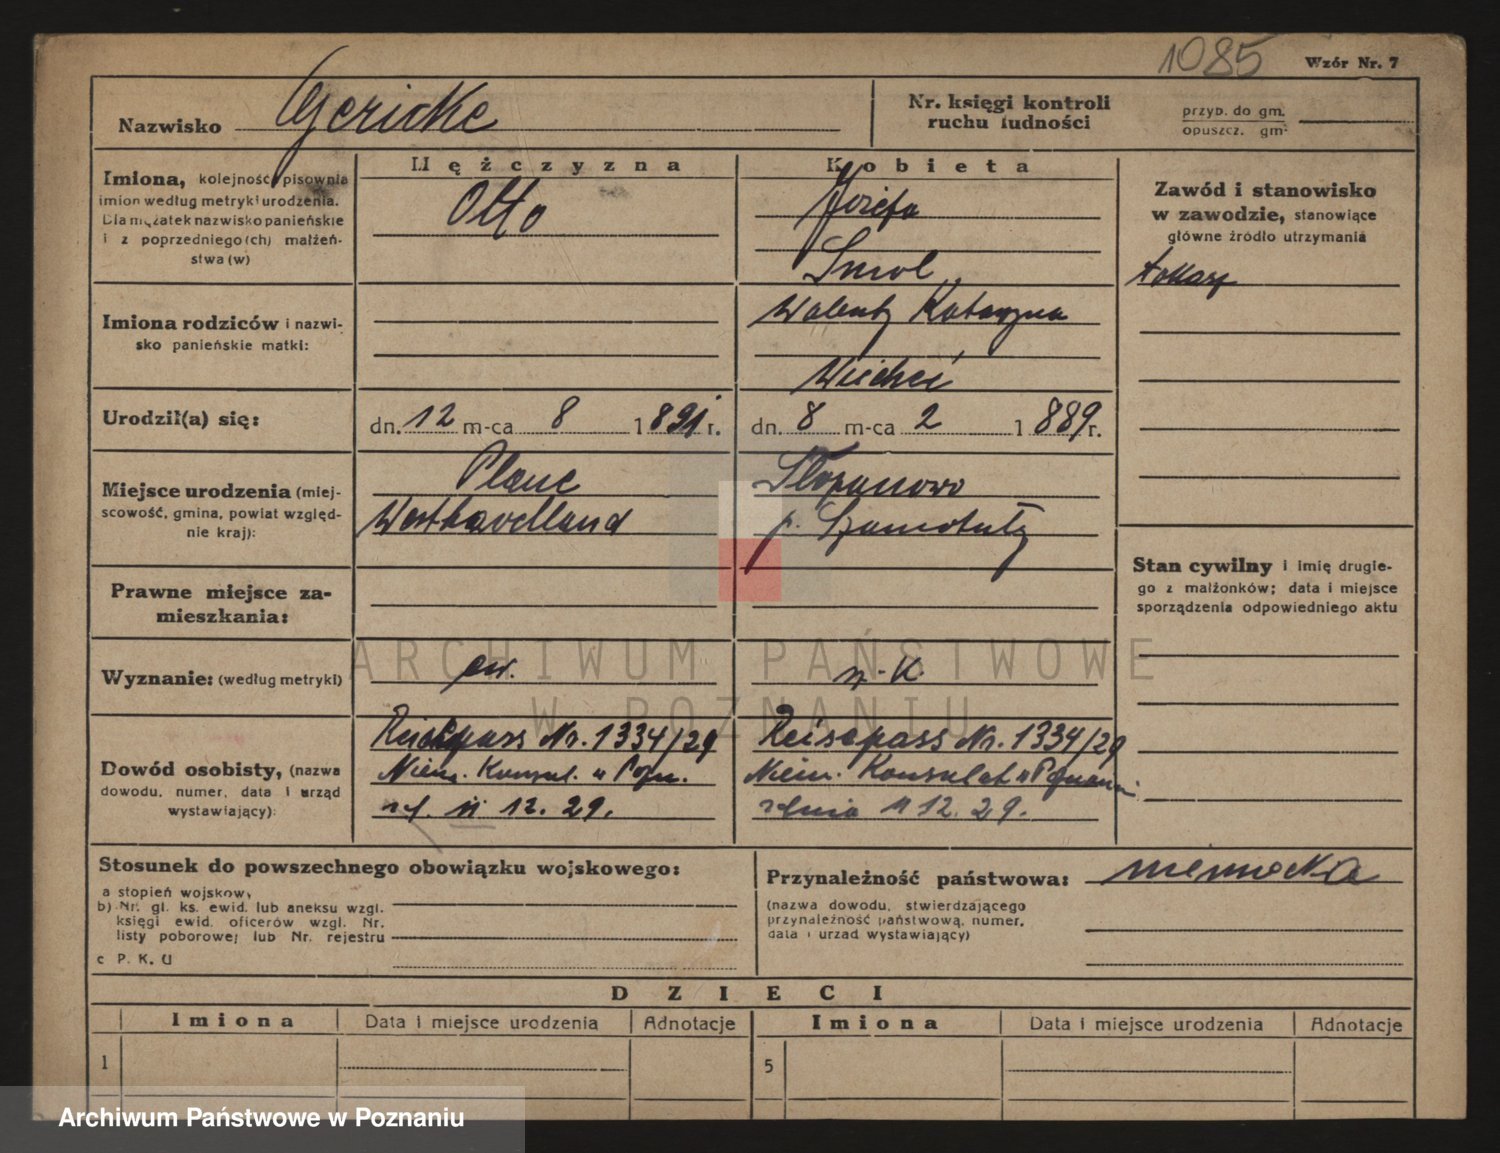 1085 Wzór Nr. 7
Nazwisko Gericke
Nr. księgi kontroli
ruchu ludności
przyb. do gm.
opuszcz. gm.
Mężczyzna Kobieta
Imiona, kolejność, pisownia
imion według metryki urodzenia.
Dla mężatek nazwisko panieńskie
i z poprzedniego(ch) małżeń-
stwa(w)
Otto
Józefa
Smol
Zawód i stanowisko
w zawodzie, stanowiące
główne źródło utrzymania
tokarz
Imiona rodziców i nazwi-
sko panieńskie matki:
Walenty Katarzyna
Wiecheć
Urodził(a) się:
dn. 12 m-ca 8 1891 r.
dn. 8 m-ca 2 1889 r.
Miejsce urodzenia (miej-
scowość, gmina, powiat względ-
nie kraj):
Plaue
Westhavelland
Słopanowo
p. Szamotuły
Prawne miejsce za-
mieszkania:
Stan cywilny i imię drugie-
go z małżonków; data i miejsce
sporządzenia odpowiedniego aktu
Wyznanie: (według metryki)
ew.
rz.-k.
Dowód osobisty, (nazwa
dowodu, numer, data i urząd
wystawiający):
Reisepass Nr. 1334/29
Niem. Konsul. w Pozn.
11 12. 29.
Reisepass Nr. 1334/29
Niem. Konsulat w Poznaniu
z dnia 11 12. 29.
Stosunek do powszechnego obowiązku wojskowego:
a stopień wojskowy
b) Nr. gl. ks. ewid. lub aneksu wzgl.
księgi ewid. oficerów wzgl. Nr.
listy poborowej lub Nr. rejestru
c P. K. U
Przynależność państwowa: niemiecka
(nazwa dowodu, stwierdzającego
przynależność państwową, numer,
data i urząd wystawiający)
DZIECI
Imiona Data i miejsce urodzenia Adnotacje Imiona Data i miejsce urodzenia Adnotacje
1 5
ARCHIWUM PAŃSTWOWE
W POZNANIU
Archiwum Państwowe w Poznaniu